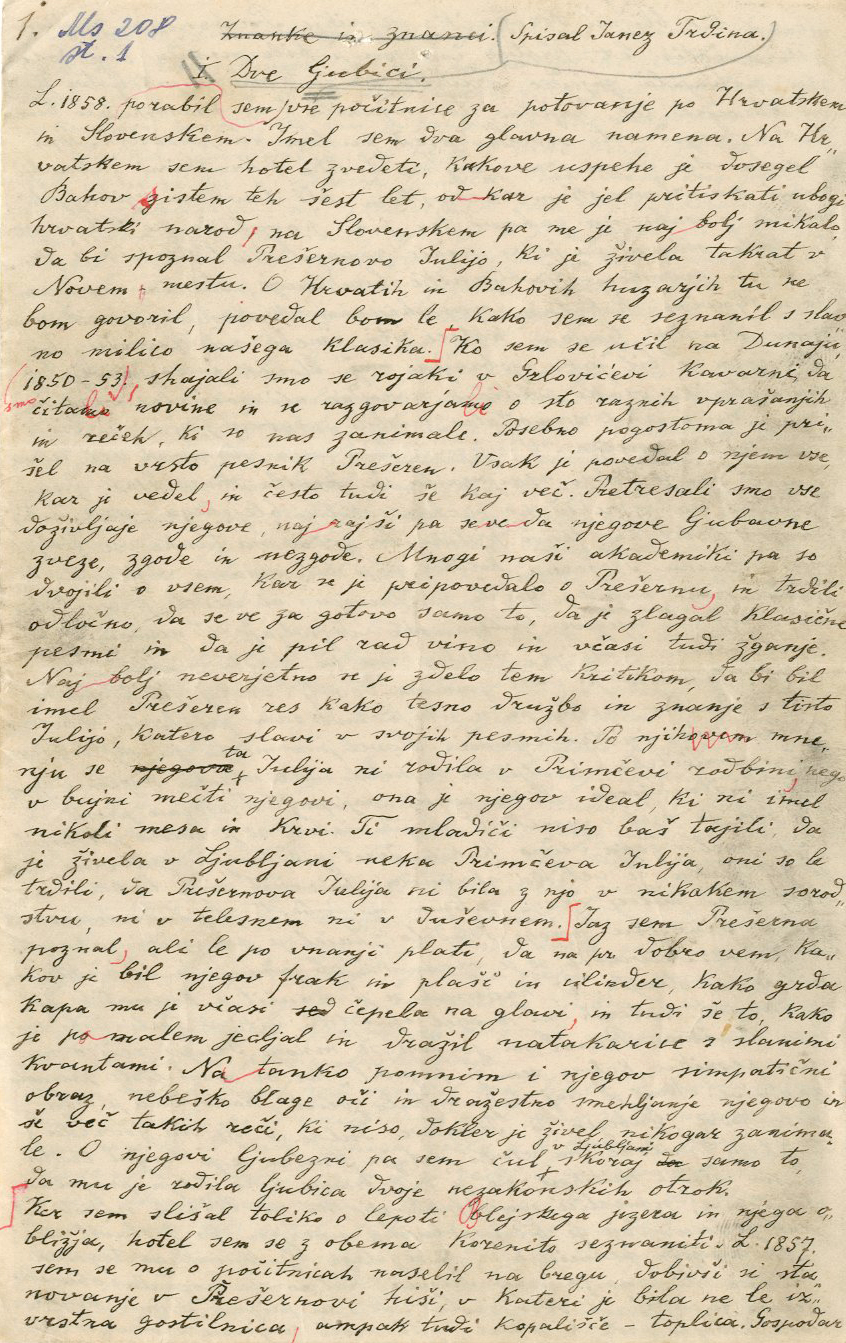 1. Ms 208
št. 1
Znanke in znanci. (Spisal Janez Trdina.)
I. Dve ljubici.
L. 1858. porabil sem vse počitnice za potovanje po Hrvatskem
in Slovenskem. Imel sem dva glavna namena. Na Hr„
vatskem sem hotel zvedeti, kakove uspehe je dosegel
Bahov sistem teh šest let, od kar je jel pritiskati ubogi
hrvatski narod, na Slovenskem pa me je naj bolj mikalo,
da bi spoznal Prešernovo Julijo, ki je živela takrat v
Novem mestu. O Hrvatih in Bahovih huzarjih tu ne
bom govoril, povedal bom le, kako sem se seznanil s slav
no milico našega klasika. Ko sem se učil na Dunaju,
1850-53, shajali smo se rojaki v Grlovićevi kavarni, da
smo čitali novine in se razgovarjali o sto raznih vprašanjih
in rečeh, ki so nas zanimale. Posebno pogostoma je pri„
šel na vrsto pesnik Prešeren. Vsak je povedal o njem vse,
kar je vedel, in često tudi še kaj več. Pretresali smo vse
doživljaje njegove, naj rajši pa seve da njegove ljubavne
zveze, zgode in nezgode. Mnogi naši akademiki pa so
dvojili o vsem, kar se je pripovedalo o Prešernu, in trdili
odločno, da se ve za gotovo samo to, da je zlagal klasične
pesmi in da je pil rad vino in včasi tudi žganje.
Naj bolj neverjetno se je zdelo tem kritikom, da bi bil
imel Prešeren res kako tesno družbo in znanje s tisto
Julijo, katero slavi v svojih pesmih. Po njihovem mne„
nju se njegova ta Julija ni rodila v Primčevi rodbini, nego
v bujni mečti njegovi, ona je njegov ideal, ki ni imel
nikoli mesa in krvi. Ti mladiči niso baš tajili, da
je živela v Ljubljani neka Primčeva Julija, oni so le
trdili, da Prešernova Julija ni bila z njo v nikakem sorod„
stvu, ni v telesnem ni v duševnem. Jaz sem Prešerna
poznal, ali le po vnanji plati, da na pr dobro vem, ka„
kov je bil njegov frak in plašč in cilinder, kako grda
kapa mu je včasi čepela na glavi, in tudi še to, kako
je po malem jecljal in dražil natakarice s slanimi
kvantami. Na tanko pomnim i njegov simpatični
obraz, nebeško blage oči in dražestno smehljanje njegovo in
še več takih reči, ki niso, dokler je živel, nikogar zanima„
le. O njegovi ljubezni pa sem čul v Ljubljani skoraj da samo to,
da mu je rodila ljubica dvoje nezakonskih otrok.
Ker sem slišal toliko o lepoti blejskega jezera in njega o„
bližja, hotel sem se z obema korenito seznaniti. L. 1857.
sem se mu o počitnicah naselil na bregu, dobivši si sta
novanje v Prešernovi hiši, v kateri je bila ne le iz„
vrstna gostilnica, ampak tudi kopališče - toplica. Gospodar